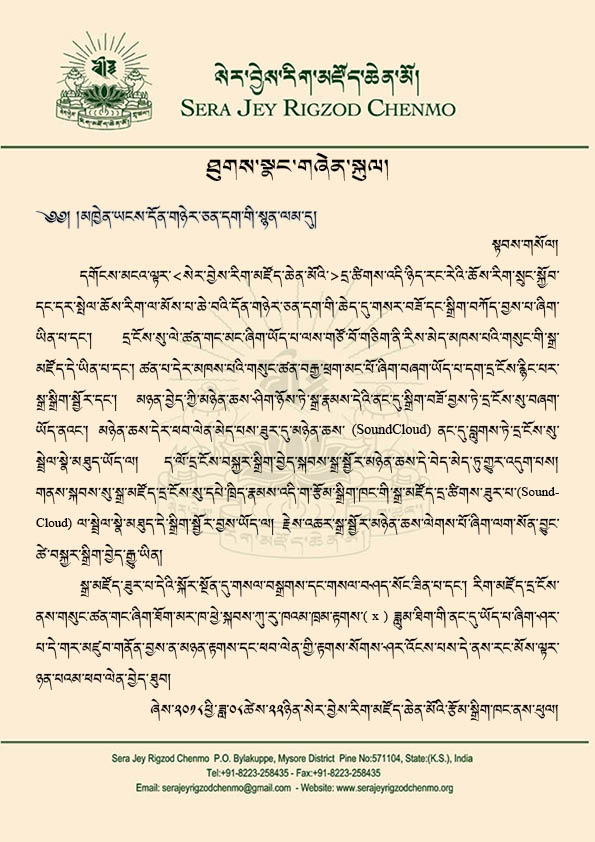 སེར་བྱེས་རིག་མཛོད་ཆེན་མོ།
SERA JEY RIGZOD CHENMO
ཐུགས་སྣང་གཞེན་སྐུལ།
༄༅། །མཁྱེན་ཡངས་དོན་གཉེར་ཅན་དག་གི་སྙན་ལམ་དུ།
སྟབས་གསོལ།
དགོངས་མངའ་ལྟར་<སེར་བྱེས་རིག་མཛོད་ཆེན་མོའི་>དྲ་ཚིགས་འདི་ཉིད་རང་རེའི་ཆོས་རིག་སྲུང་སྐྱོབ་
དང་དར་སྤེལ་ཆོས་རིག་ལ་མོས་པ་ཆེ་བའི་དོན་གཉེར་ཅན་དག་གི་ཆེད་དུ་གསར་བཟོ་དང་སྒྲིག་བཀོད་བྱས་པ་ཞིག་
ཡིན་པ་དང་། དྲ་ངོས་སུ་ལེ་ཚན་གང་མང་ཞིག་ཡོད་པ་ལས་གཙོ་བོ་གཅིག་ནི་རིས་མེད་མཁས་པའི་གསུང་གི་སྒྲ་
མཛོད་དེ་ཡིན་པ་དང་། ཚན་པ་དེར་མཁས་པའི་གསུང་ཚན་བརྒྱ་ཕྲག་མང་པོ་ཞིག་བཞག་ཡོད་པ་དག་དྲ་ངོས་རྙིང་པར་
སྒྲ་སྒྲིག་སྦྱོར་དང་། མཉན་བྱེད་ཀྱི་མཉེན་ཆས་ཤིག་ཉོས་ཏེ་སྒྲ་རྣམས་དེའི་ནང་དུ་སྒྲིག་བཟོ་བྱས་ཏེ་དྲ་ངོས་སུ་བཞག་
ཡོད་ནའང་། མཉེན་ཆས་དེར་ཕབ་ལེན་མེད་པས་ཟུར་དུ་མཉེན་ཆས་ (SoundCloud) ནང་དུ་བླུགས་ཏེ་དྲ་ངོས་སུ་
སྦྲེལ་སྣེ་མཐུད་ཡོད་ལ། ད་ལོ་དྲ་ངོས་བསྐྱར་སྒྲིག་བྱེད་སྐབས་སྒྲ་སྦྱོར་མཉེན་ཆས་དེ་བེད་མེད་ཏུ་གྱུར་འདུག་པས།
གནས་སྐབས་སུ་སྒྲ་མཛོད་དྲ་ངོས་སུ་དཔེ་ཁྲིད་རྣམས་འདི་ག་རྩོམ་སྒྲིག་ཁང་གི་སྒྲ་མཛོད་དྲ་ཚིགས་ཟུར་པ་(Sound-
Cloud) ལ་སྦྲེལ་སྣེ་མཐུད་དེ་སྒྲིག་སྦྱོར་བྱས་ཡོད་ལ། རྗེས་འཆར་སྒྲ་སྦྱོར་མཉེན་ཆས་ལེགས་པོ་ཞིག་ལག་སོན་བྱུང་
ཚེ་བསྐྱར་སྒྲིག་བྱེད་རྒྱུ་ཡིན།
སྒྲ་མཛོད་ཟུར་པ་དེའི་སྐོར་སྔོན་དུ་གསལ་བསྒྲགས་དང་གསལ་བཤད་སོང་ཟིན་པ་དང་། རིག་མཛོད་དྲ་ངོས་
ནས་གསུང་ཚན་གང་ཞིག་ཐོག་མར་ཁ་བྱེ་སྐབས་ཀུ་རུ་ཁའམ་ཁྲམ་རྟགས་( x ) ཟླུམ་ཐིག་གི་ནང་དུ་ཡོད་པ་ཞིག་ཤར་
པ་དེ་གར་མཛུབ་གནོན་བྱས་ན་མཉན་རྟགས་དང་ཕབ་ལེན་གྱི་རྟགས་སོགས་ཤར་འོངས་པས་དེ་ནས་རང་མོས་ལྟར་
ཉན་པའམ་ཕབ་ལེན་བྱེད་ཐུབ།
ཞེས་༢༠༡༨ཕྱི་ཟླ་༠༨ཚེས་༢༢ཉིན་སེར་བྱེས་རིག་མཛོད་ཆེན་མོའི་རྩོམ་སྒྲིག་ཁང་ནས་ཕུལ།
Sera Jey Rigzod Chenmo P.O. Bylakuppe, Mysore District Pine No:571104, State:(K.S.), India
Tel:+91-8223-258435 - Fax:+91-8223-258435
Email: serajeyrigzodchenmo@gmail.com - Website: www.serajeyrigzodchenmo.org